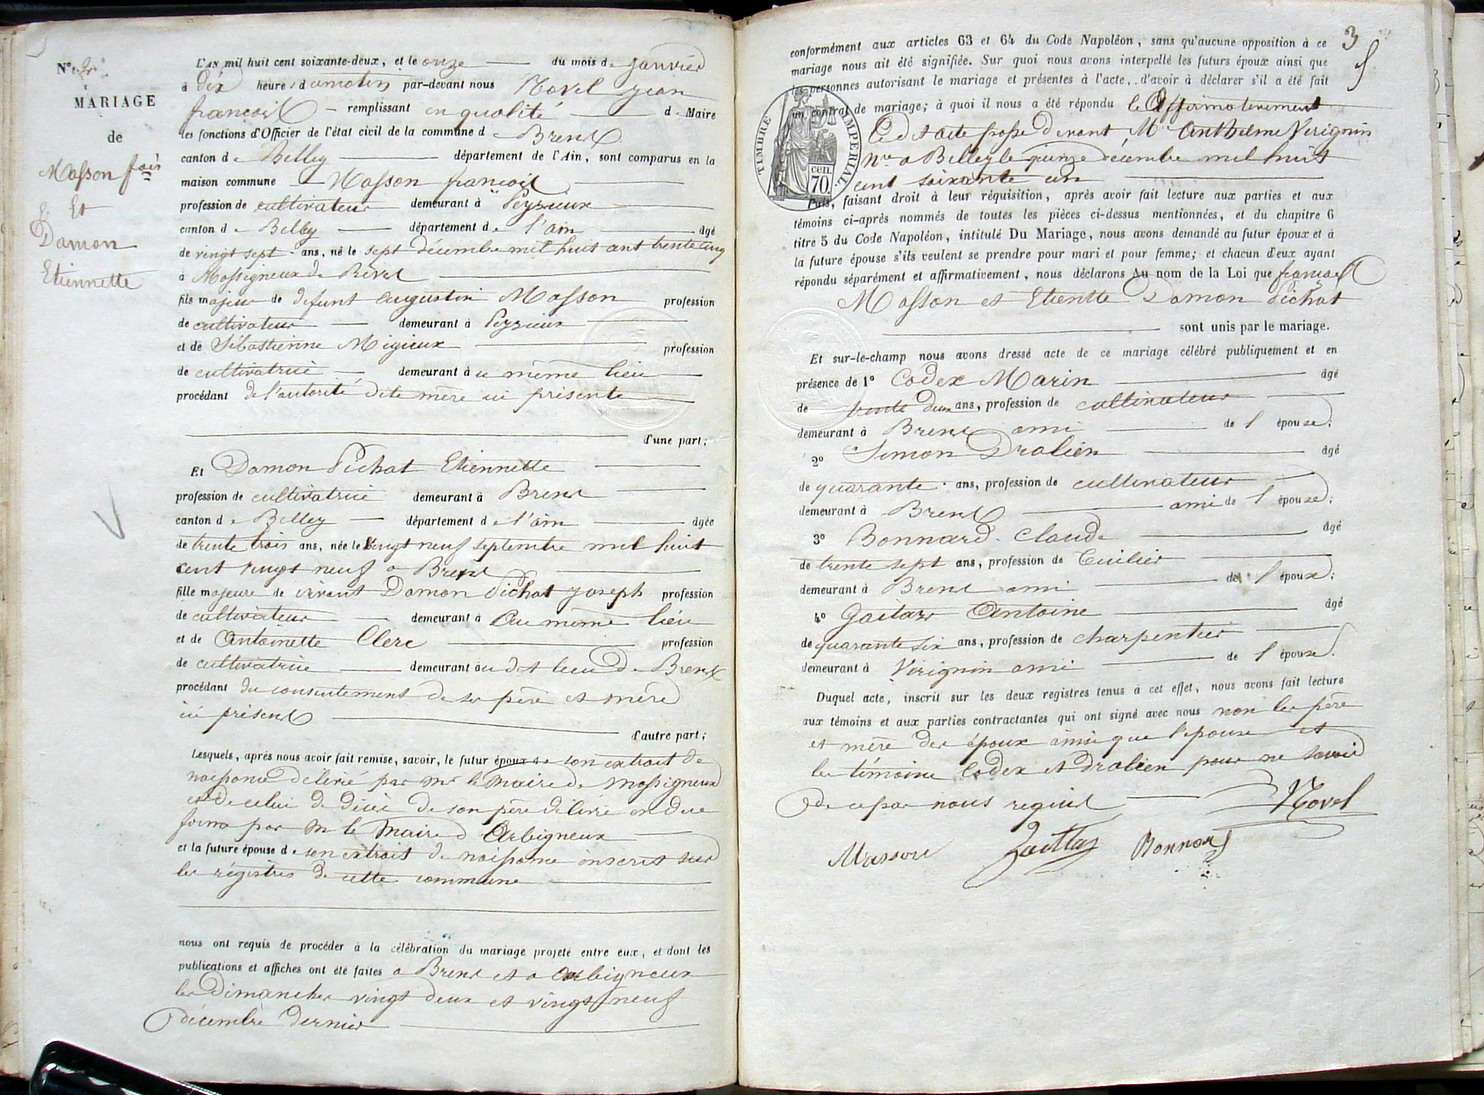 N°
MARIAGE
de
Masson fois
Et
Damon
Etiennette
L'AN mil huit cent soixante-deux, et le onze du mois de janvier
à dix heures du matin par-devant nous Novel jean
françois remplissant en qualité de Maire
les fonctions d'Officier de l'état civil de la commune de Brens
canton de Belley département de l'Ain, sont comparus en la
maison commune Masson françois
profession de cultivateur demeurant à Peyzieux
canton de Belley département de l'ain âgé
de vingt sept ans, né le sept décembre mil huit cent trente cinq
à Massigneux de Rives
fils majeur de défunt augustin Masson profession
de cultivateur demeurant à Peyzieux
et de Sébastienne Migieux profession
de cultivatrice demeurant à u même lieu
procédant de l'autorité dite mère ici présente
d'une part;
Et Damon Pichat Etiennette
profession de cultivatrice demeurant à Brens
canton de Belley département de l'ain âgée
de trente trois ans, née le vingt neuf septembre mil huit
cent vingt neuf à Brens
fille majeure de vivant Damon Pichat joseph profession
de cultivateur demeurant à Au même lieu
et de Antoinette Clerc profession
de cultivatrice demeurant àu dit lieu de Brens
procédant du consentement de ses père et mère
ici présent
d'autre part;
Lesquels, après nous avoir fait remise, savoir, le futur époux de son extrait de
naissance délivré par mr le maire de Massigneux
et de celui de décès de son père délivré en due
forme par m le maire d'Arbigneux
et la future épouse de son extrait de naissance inscrit sur
les régistres de cette commune
nous ont requis de procéder à la célébration du mariage projeté entre eux, et dont les
publications et affiches ont été faites à Brens et à Arbigneux
les Dimanches vingt deux et vingt neuf
décembre dernier
3
conformément aux articles 63 et 64 du Code Napoléon, sans qu'aucune opposition à ce
mariage nous ait été signifiée. Sur quoi nous avons interpellé les futurs époux ainsi que
les personnes autorisant le mariage et présentes à l'acte, d'avoir à déclarer s'il a été fait
un contrat de mariage; à quoi il nous a été répondu Affirmativement
TIMBRE IMPÉRIAL
CEN. 70
Ce dit acte passé devant Me Anthelme Vérignin
Nre à Belley le quinze décembre mil huit
cent soixante un
Puis, faisant droit à leur réquisition, après avoir fait lecture aux parties et aux
témoins ci-après nommés de toutes les pièces ci-dessus mentionnées, et du chapitre 6
titre 5 du Code Napoléon, intitulé Du Mariage, nous avons demandé au futur époux et à
la future épouse s'ils veulent se prendre pour mari et pour femme; et chacun d'eux ayant
répondu séparément et affirmativement, nous déclarons Au nom de la Loi que françois
Masson et Etiennette Damon Pichat
sont unis par le mariage.
Et sur-le-champ nous avons dressé acte de ce mariage célébré publiquement et en
présence de 1° Codex Marin âgé
de trente deux ans, profession de cultivateur
demeurant à Brens ami de l'épouse;
2° Simon Dralien âgé
de quarante ans, profession de cultivateur
demeurant à Brens ami de l'épouse;
3° Bonnard Claude âgé
de trente sept ans, profession de Tuilier
demeurant à Brens ami de l'époux;
4° Antoine âgé
de quarante six ans, profession de charpentier
demeurant à Virignin ami de l'épouse.
Duquel acte, inscrit sur les deux registres tenus à cet effet, nous avons fait lecture
aux témoins et aux parties contractantes qui ont signé avec nous non les père
et mère des époux ainsi que l'épouse et
les témoins Codex et Dralien pour ne savoir
de ce par nous requis
Novel
Masson
Bonnard